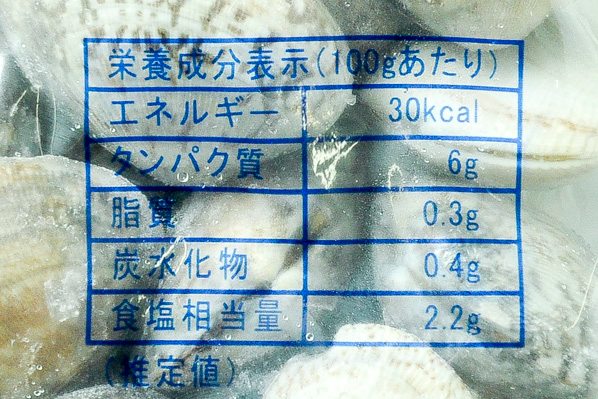 栄養成分表示(100gあたり)
エネルギー 30kcal
タンパク質 6g
脂質 0.3g
炭水化物 0.4g
食塩相当量 2.2g
(推定値)